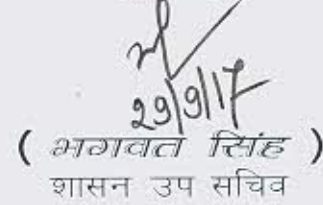 29/9/17
( भगवत सिंह )
शासन उप सचिव